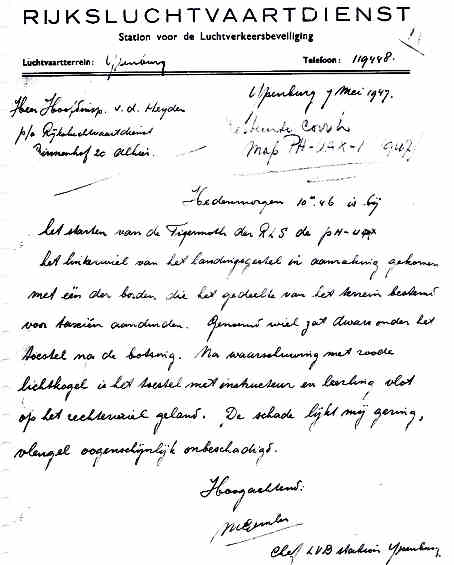 RIJKSLUCHTVAARTDIENST
Station voor de Luchtverkeersbeveiliging
Luchtvaartterrein: Ypenburg Telefoon: 119448.
Ypenburg 7 Mei 1947.
Heer Hoofdinsp. v. d. Heyden
p/o Rijksluchtvaartdienst
Binnenhof 20 Alhier.
Map PH-UAX-1
Hedenmorgen 10.46 is bij
het starten van de Tigermoth der RLS de PH-UAX
het linkerwiel van het landingsgestel in aanraking gekomen
met één der borden die het gedeelte van het terrein bestemd
voor taxiën aanduiden. Genoemd wiel zat dwars onder het
toestel na de botsing. Na waarschuwing met roode
lichtkogel is het toestel met instructeur en leerling vlot
op het rechterwiel geland. De schade lijkt mij gering,
vleugel oogenschijnlijk onbeschadigd.
Hoogachtend:
Chef LVB station Ypenburg